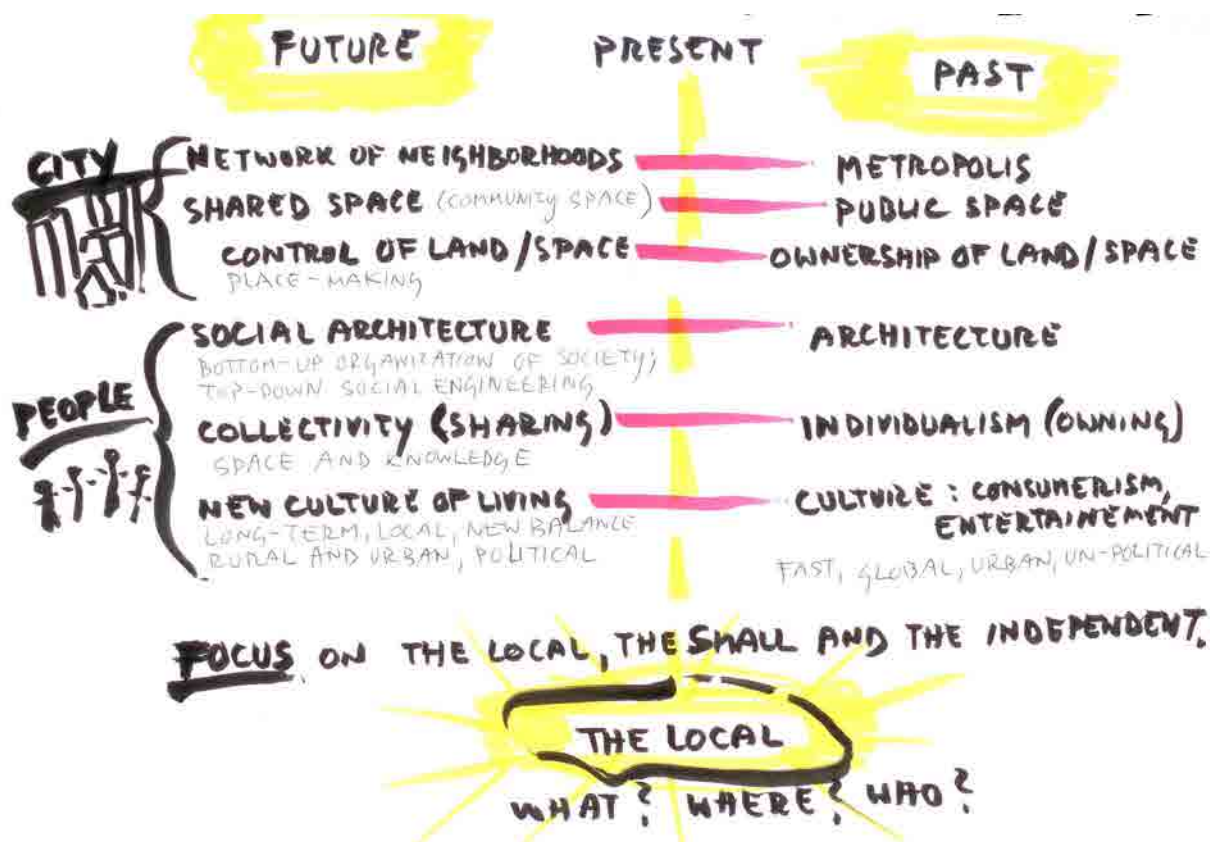 FUTURE PRESENT PAST
CITY
NETWORK OF NEIGHBORHOODS METROPOLIS
SHARED SPACE (COMMUNITY SPACE) PUBLIC SPACE
CONTROL OF LAND/SPACE OWNERSHIP OF LAND/SPACE
PLACE-MAKING
SOCIAL ARCHITECTURE ARCHITECTURE
BOTTOM-UP ORGANIZATION OF SOCIETY;
TOP-DOWN SOCIAL ENGINEERING
PEOPLE
COLLECTIVITY (SHARING) INDIVIDUALISM (OWNING)
SPACE AND KNOWLEDGE
NEW CULTURE OF LIVING CULTURE: CONSUMERISM,
ENTERTAINEMENT
LONG-TERM, LOCAL, NEW BALANCE
RURAL AND URBAN, POLITICAL
FAST, GLOBAL, URBAN, UN-POLITICAL
FOCUS ON THE LOCAL, THE SMALL AND THE INDEPENDENT.
THE LOCAL
WHAT? WHERE? WHO?